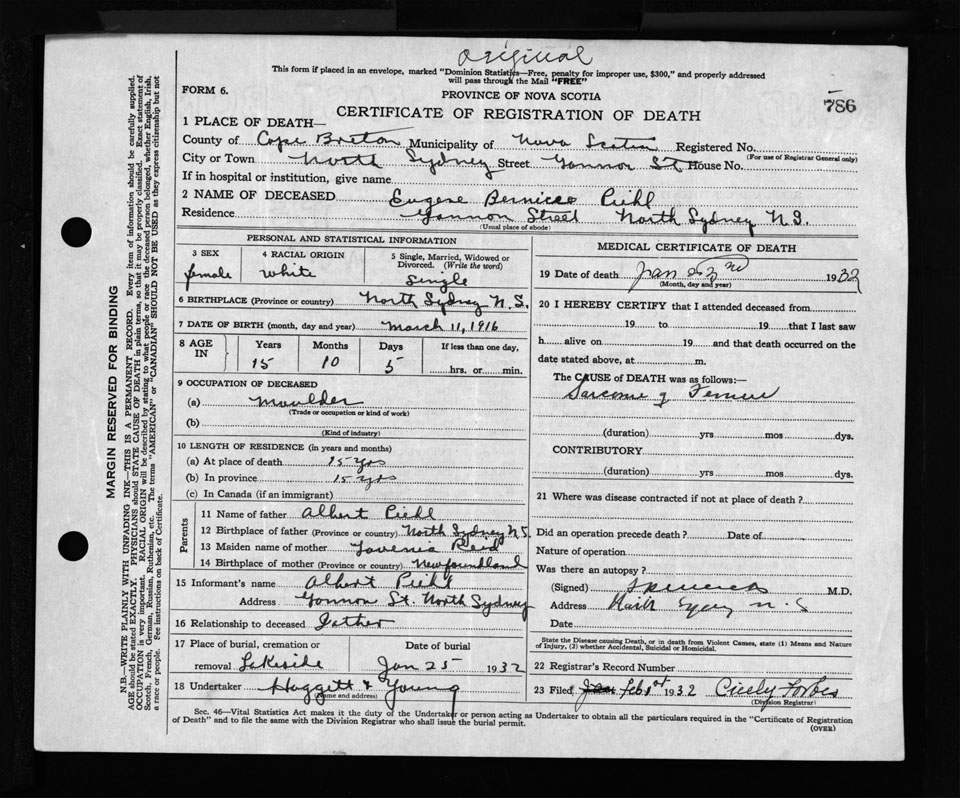 Original
This form if placed in an envelope, marked "Dominion Statistics—Free, penalty for improper use, $300," and properly addressed
will pass through the Mail "FREE"
FORM 6.
PROVINCE OF NOVA SCOTIA
786
CERTIFICATE OF REGISTRATION OF DEATH
1 PLACE OF DEATH—
County of Cape Breton Municipality of Nova Scotia Registered No.
(For use of Registrar General only)
City or Town North Sydney Street Gannon St House No.
If in hospital or institution, give name
2 NAME OF DECEASED Eugene Piehl
Residence Gannon Street North Sydney N.S.
(Usual place of abode)
PERSONAL AND STATISTICAL INFORMATION
3 SEX female
4 RACIAL ORIGIN white
5 Single, Married, Widowed or
Divorced. (Write the word)
Single
6 BIRTHPLACE (Province or country) North Sydney N.S.
7 DATE OF BIRTH (month, day and year) March 11, 1916
8 AGE IN Years Months Days If less than one day,
15 10 5 hrs. or min.
9 OCCUPATION OF DECEASED
(a) Moulder
(Trade or occupation or kind of work)
(b)
(Kind of industry)
10 LENGTH OF RESIDENCE (in years and months)
(a) At place of death 15 yrs
(b) In province 15 yrs
(c) In Canada (if an immigrant)
Parents
11 Name of father Albert Piehl
12 Birthplace of father (Province or country) North Sydney N.S.
13 Maiden name of mother Reid
14 Birthplace of mother (Province or country) Newfoundland
15 Informant's name Albert Piehl
Address Gannon St. North Sydney
16 Relationship to deceased Father
17 Place of burial, cremation or
removal Lakeside
Date of burial
Jan 25 1932
18 Undertaker Haggett & Young
(Name and address)
MEDICAL CERTIFICATE OF DEATH
19 Date of death Jan 23rd 1932
(Month, day and year)
20 I HEREBY CERTIFY that I attended deceased from
19 to 19 that I last saw
h alive on 19 and that death occurred on the
date stated above, at m.
The CAUSE of DEATH was as follows:—
Sarcoma of
(duration) yrs mos dys.
CONTRIBUTORY
(duration) yrs mos dys.
21 Where was disease contracted if not at place of death?
Did an operation precede death? Date of
Nature of operation
Was there an autopsy?
(Signed) M.D.
Address North Sydney N.S
Date
State the Disease causing Death, or in death from Violent Causes, state (1) Means and Nature
of Injury, (2) whether Accidental, Suicidal or Homicidal.
22 Registrar's Record Number
23 Filed Jan Feb 1st 1932 Cicely Forbes
(Division Registrar)
Sec. 46—Vital Statistics Act makes it the duty of the Undertaker or person acting as Undertaker to obtain all the particulars required in the "Certificate of Registration
of Death" and to file the same with the Division Registrar who shall issue the burial permit.
(OVER)
MARGIN RESERVED FOR BINDING
N.B.—WRITE PLAINLY WITH UNFADING INK—THIS IS A PERMANENT RECORD. Every item of information should be carefully supplied.
AGE should be stated EXACTLY. PHYSICIANS should STATE CAUSE OF DEATH in plain terms, so that it may be properly classified. Exact statement of
OCCUPATION is very important. RACIAL ORIGIN will be described by stating to what people or race the deceased person belonged, whether English, Irish,
Scotch, French, German, Russian, Ruthenian, etc. The terms "AMERICAN" or "CANADIAN" SHOULD NOT BE USED as they express citizenship but not
a race or people. See instructions on back of Certificate.